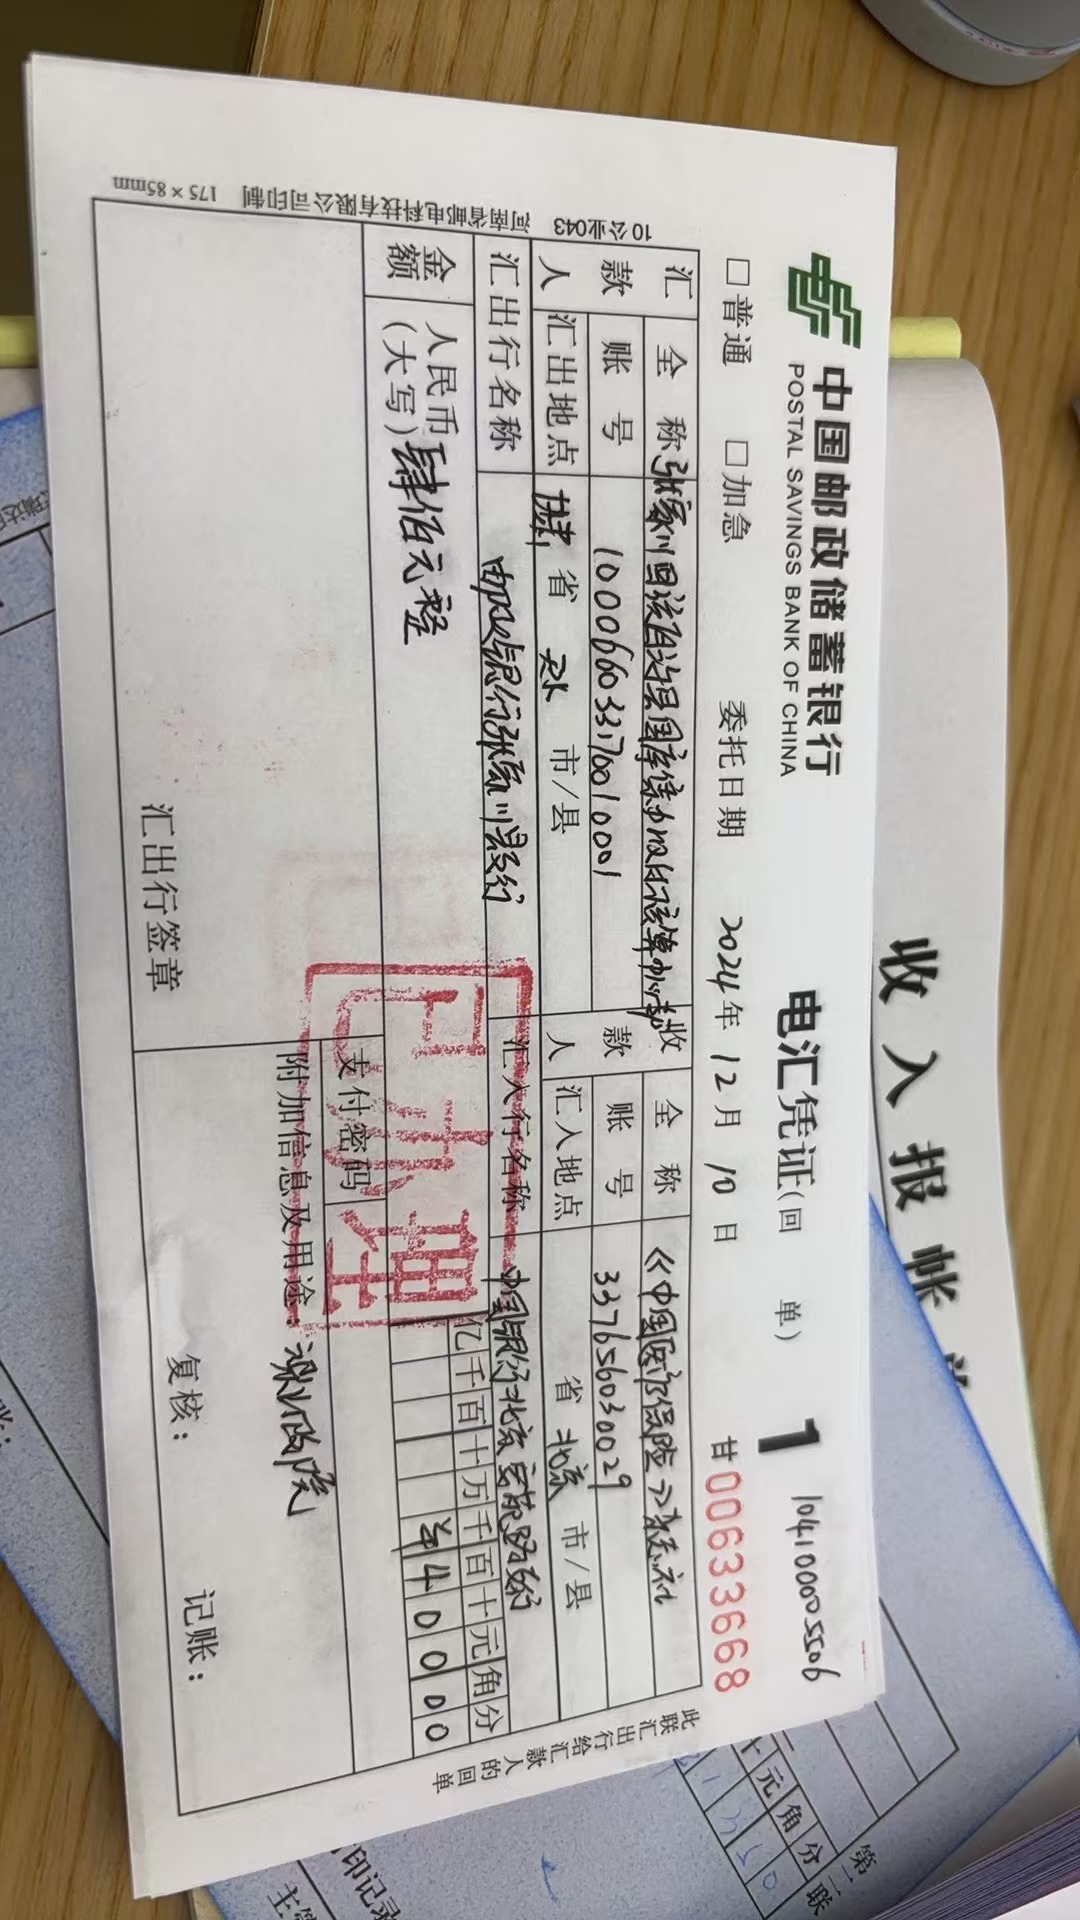 中国邮政储蓄银行
POSTAL SAVINGS BANK OF CHINA
电汇凭证(回 单) 1
104100005506
□普通 □加急 委托日期 2024年12月10日 甘00633668
汇款人 全称 张家川回族自治县国库集中收付核算中心
收款人 全称 《中国医疗保险》杂志社
账号 10006603370010001
账号 337656030029
汇出地点 甘肃省 天水市/县
汇入地点 省 北京市/县
汇出行名称 邮政银行张家川县支行
汇入行名称 中国银行北京安苑路支行
金额 人民币(大写) 肆佰元整
亿千百十万千百十元角分
¥40000
支付密码
附加信息及用途:
汇出行签章
复核: 记账:
此联汇出行给汇款人的回单
10公业043 河南省邮电科技有限公司印制 175×85mm
收入报
元角分
第二联
印记录